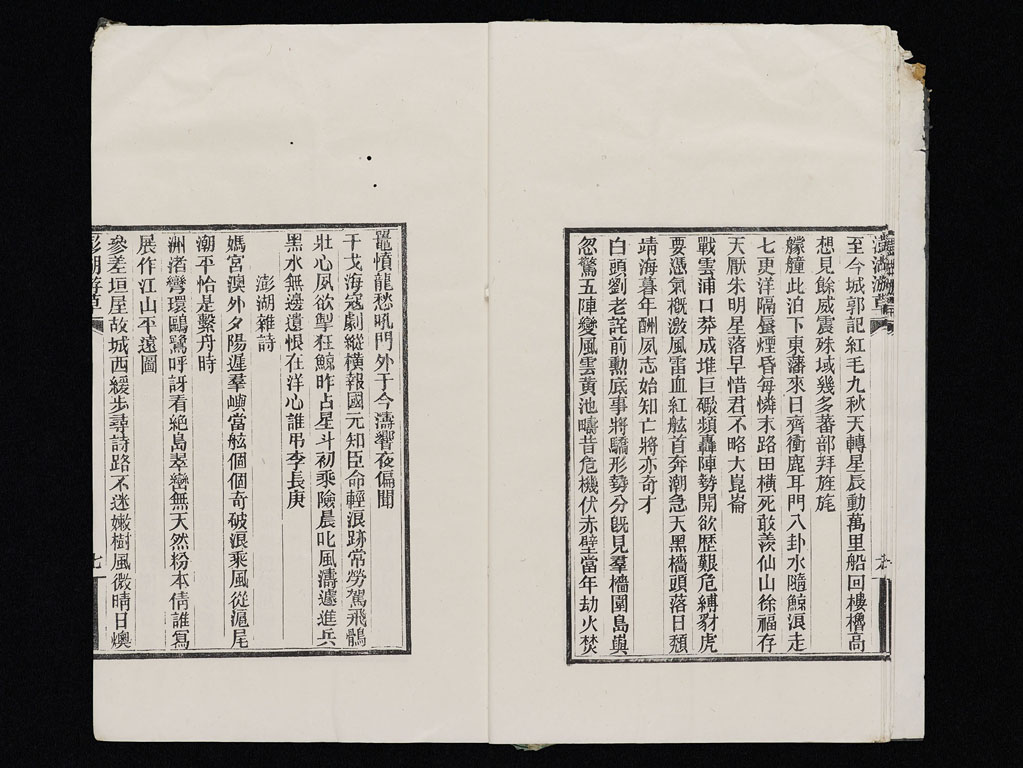 澎湖游草
至今城郭記紅毛九秋天轉星辰動萬里船回樓櫓高
想見餘威震殊域幾多蕃部拜旌旄
艨艟此泊下東藩來日齊衝鹿耳門八卦水隨鯨浪走
七更洋隔蜃煙昏每憐末路田橫死敢羨仙山徐福存
天厭朱明星落早惜君不略大崑崙
戰雲浦口莽成堆巨礮頻轟陣勢開欲歷艱危縛豺虎
要憑氣概激風雷血紅舷首奔潮急天黑檣頭落日頹
靖海暮年酬夙志始知亡將亦奇才
白頭劉老詫前勳底事將驕形勢分旣見羣檣圍島輿
忽驚五陣變風雲黃池疇昔危機伏赤壁當年劫火焚
鼉憤龍愁吼門外于今濤響夜偏聞
干戈海寇劇縱橫報國元知臣命輕浪跡常勞駕飛鶻
壯心夙欲掣狂鯨昨占星斗初乘險晨叱風濤遽進兵
黑水無邊遺恨在洋心誰弔李長庚
澎湖雜詩
媽宮澳外夕陽遲羣嶼當舷個個奇破浪乘風從滬尾
潮平恰是繫舟時
洲渚彎環鷗鷺呼訝看絕島翠巒無天然粉本倩誰寫
展作江山平遠圖
參差垣屋故城西緩步尋詩路不迷嫩樹風微晴日燠
澎湖游草
七